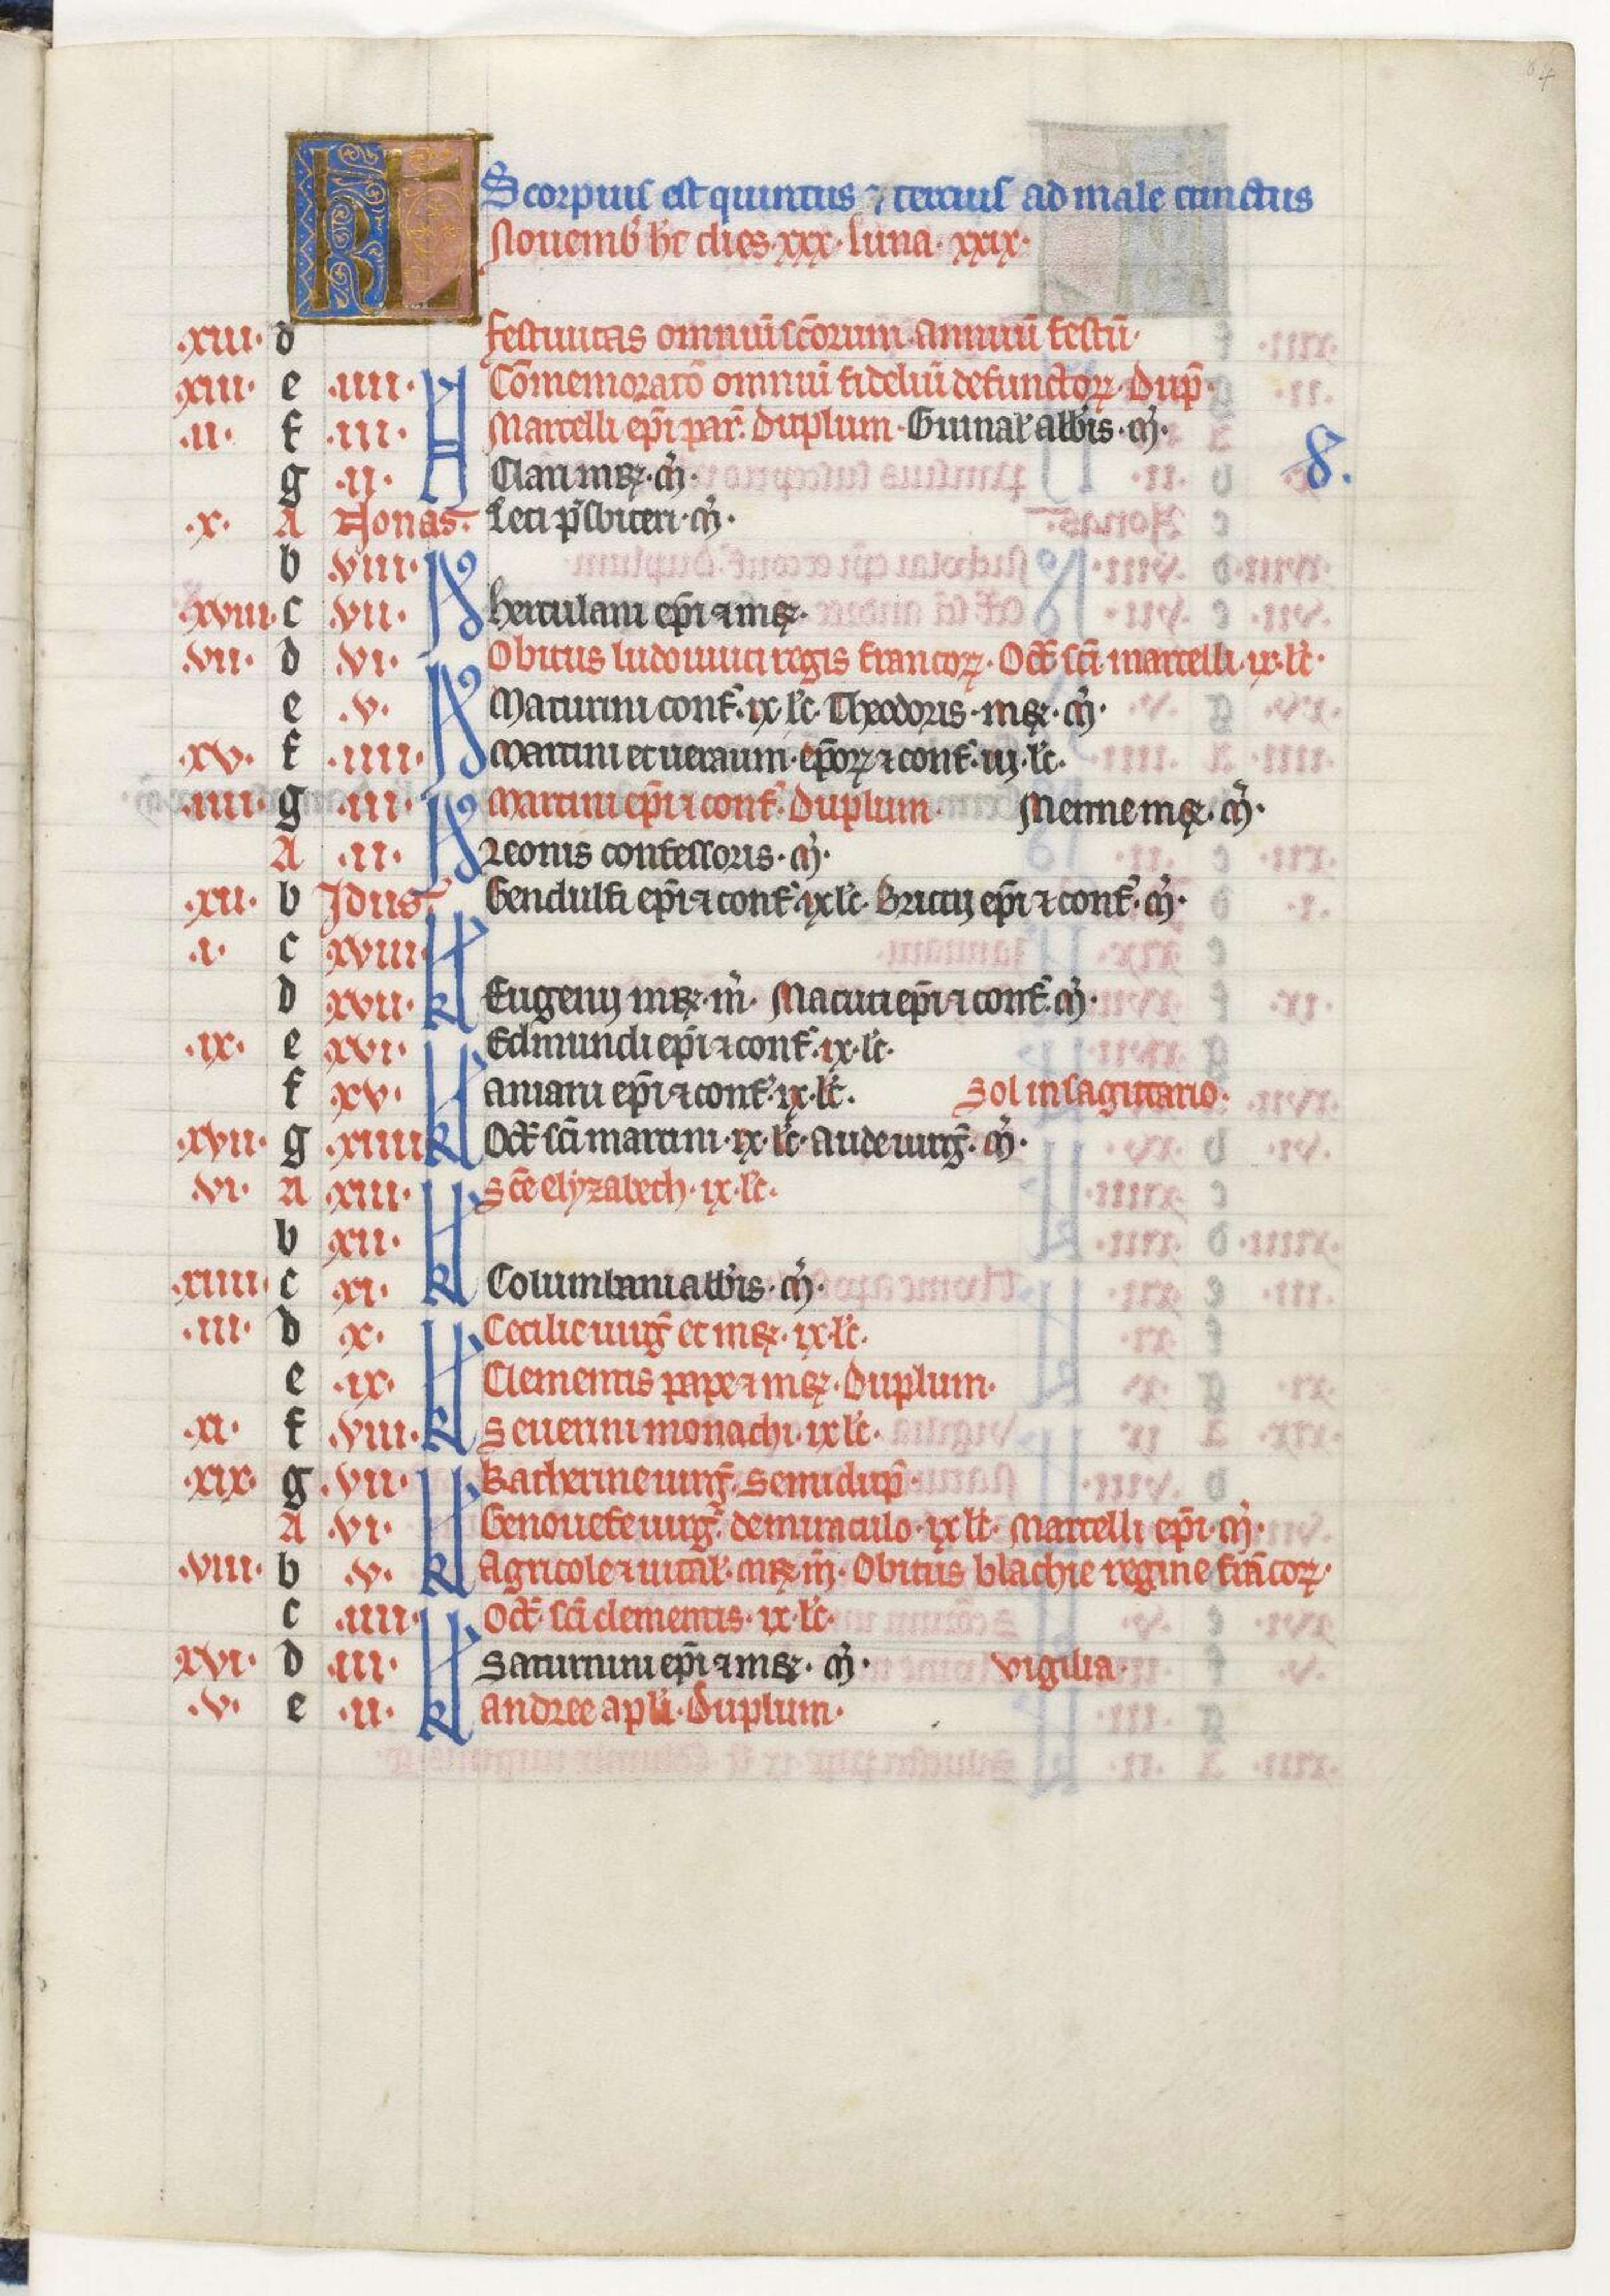 KL Scorpius est quintus ⁊ tercius ad male cunctus
Nouemb̄ ht̄ dies xxx. luna. xxix.
.xiii. d festiuitas omniū sc̄orum. Annuū festū.
.xiii. e .iiii. N Cōmemoratō omniū fideliū defunctoꝝ. Dup̄.
.ii. f .iii. Marcelli ep̄i par̄. duplum. Guinal̄ abb̄is. m̄.
g .ii. N Clari mr̄ꝫ. m̄. 8.
.x. A Nonas. Leti p̄sbiteri. m̄.
b .viii. Id
.xviii. c .vii. herculani ep̄i ⁊ mr̄ꝫ.
.vii. d .vi. Obitus ludouuici regis francoꝝ. Oct̄ sc̄i marcelli. ix. lc̄.
e .v. Id Maturini conf̄. ix lc̄. Theodoris. mr̄ꝫ. m̄.
.xv. f .iiii. Martini et ueraum. ep̄oꝝ ⁊ conf̄. iii. lc̄.
.iiii. g .iii. Id Martini ep̄i ⁊ conf̄. Duplum. Menne mr̄ꝫ. m̄.
A .ii. Leonis confessoris. m̄.
.xii. b Idus. Gendulfi ep̄i ⁊ conf̄. ix lc̄. Briccij ep̄i ⁊ conf̄. m̄.
.i. c xviii. kl
d xvii. Eugenij mr̄ꝫ. m̄. Macuti ep̄i ⁊ conf̄. m̄.
.ix. e xvi. kl Edmundi ep̄i ⁊ conf̄. ix. lc̄.
f xv. aniani ep̄i ⁊ conf̄. ix. lc̄. Sol in sagittario.
.xvii. g .xiiii. Oct̄ sc̄i martini. ix. lc̄. Aude uirḡ. m̄.
.vi. A xiii. kl Sc̄e elyzabech. ix. lc̄.
b xii.
.xiiii. c xi. Columbani abb̄is. m̄.
.iii. d x. kl Cecilie uirḡ et mr̄ꝫ. ix. lc̄.
e .ix. Clementis pape ⁊ mr̄ꝫ. Duplum.
.xi. f .viii. Seuerini monachi. ix lc̄.
.xix. g .vii. kl katherine uirḡ. Semidup̄.
A .vi. Genouefe uirḡ. de miraculo. ix lc̄. Marcelli ep̄i. m̄.
.viii. b .v. Agricole ⁊ uital̄. mr̄ꝫ m̄. Obitus blachie regine francoꝝ.
c .iiii. kl Oct̄. sc̄i clementis. ix. lc̄.
.xvi. d .iii. Saturnini ep̄i ⁊ mr̄ꝫ. m̄. vigilia.
.v. e .ii. andree apl̄i. Duplum.